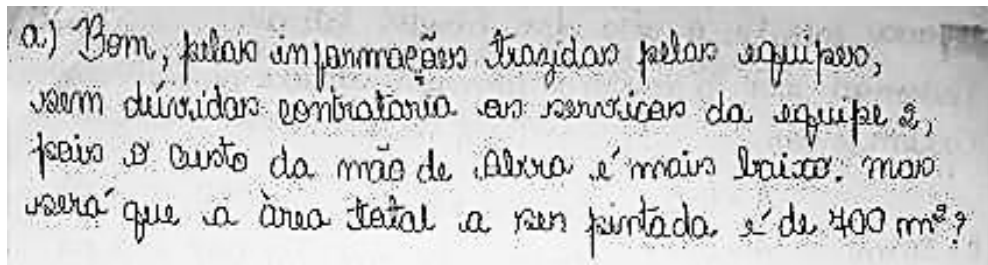 a) Bom, pelas informações trazidas pelas equipes,
sem dúvidas contrataria os serviços da equipe 2,
pois o custo da mão de obra é mais baixo. mas
será que a área total a ser pintada é de 400 m²?